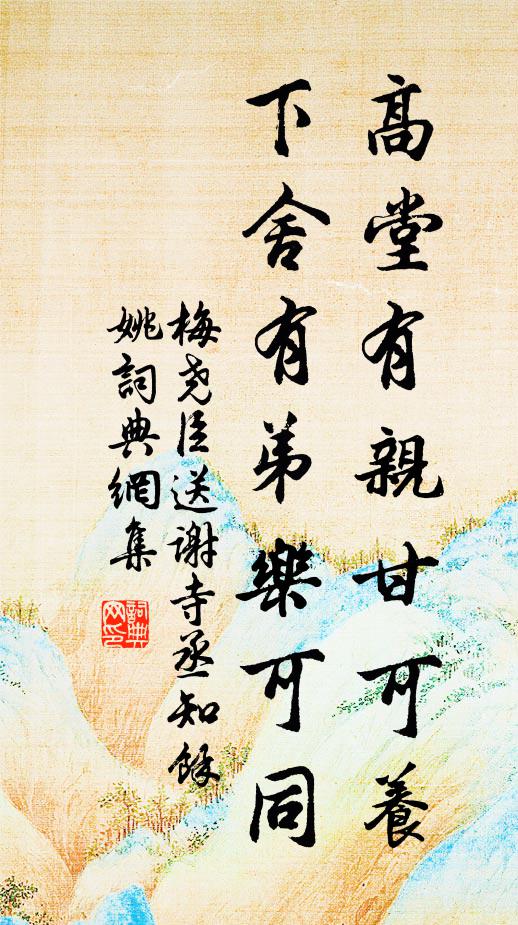 高堂有親甘可養
下舍有弟樂可同
梅尧臣送謝寺丞知餘
姚詞典網集
詞典
网印